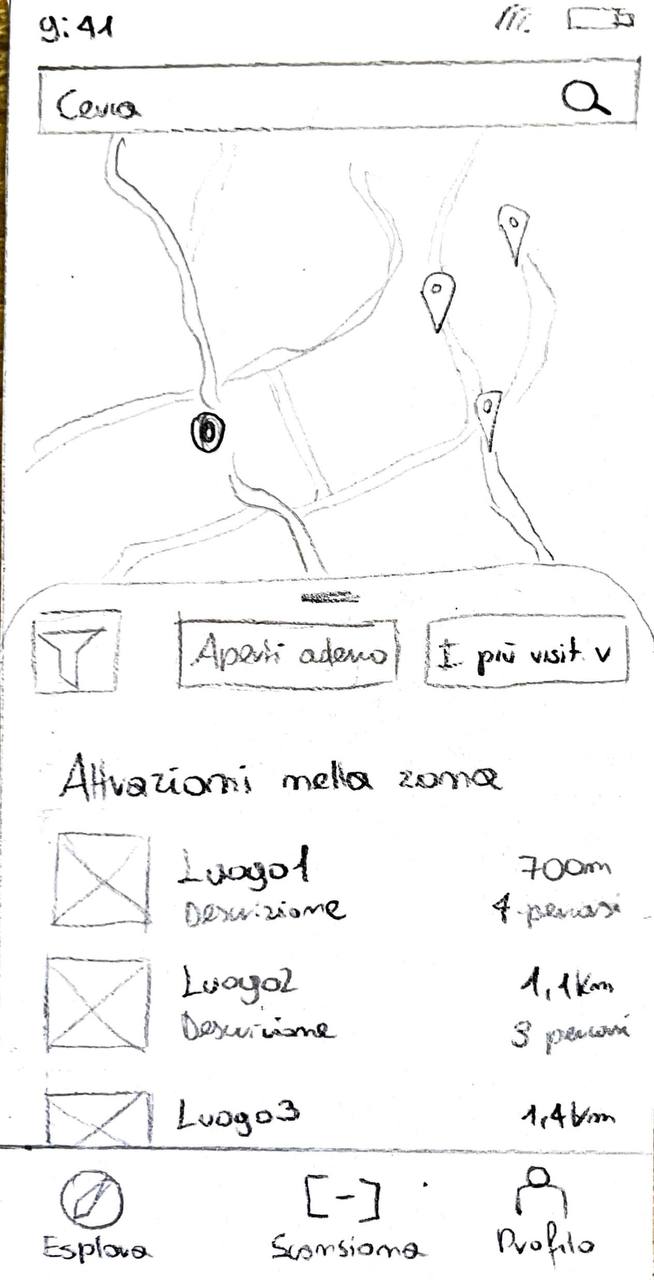 9:41
Cerca
Aperti adesso
I più visit. v
Attrazioni nella zona
Luogo1 700m
Descrizione 4 percorsi
Luogo2 1,1km
Descrizione 3 percorsi
Luogo3 1,4km
Esplora Scansiona Profilo